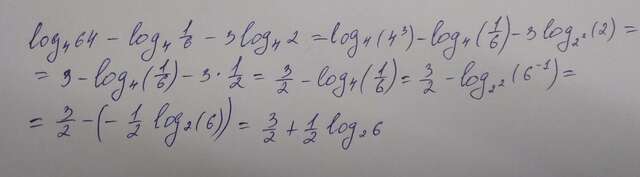 log₄64 - log₄ 1/6 - 3log₄2 = log₄(4³) - log₄(1/6) - 3log₂²(2) =
= 3 - log₄(1/6) - 3·1/2 = 3/2 - log₄(1/6) = 3/2 - log₂²(6⁻¹) =
= 3/2 - (-1/2 log₂(6)) = 3/2 + 1/2 log₂6